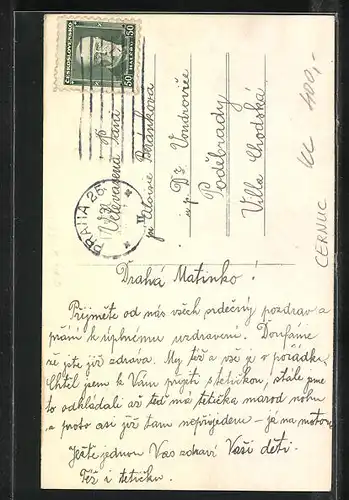 ČESKOSLOVENSKO
50 HALÉŘŮ 50
PRAHA 25
Velevážená paní
pí Aloisie Beránková
u p. Dr. Vondrovice
Poděbrady
Villa Chodská
ČERNUC
Kč 400,-
Drahá Matinko!
Přijměte od nás všech srdečný pozdrav a
přání k úplnému uzdravení. Doufáme
že jste již zdráva. My též a vše je v pořádku.
Chtěl jsem k Vám přijeti s tetičkou, stále jsme
to odkládali až teď má tetička marod nohu
a proto asi již tam nepřijedem – já na motor
Ještě jednou Vás zdraví Vaši děti.
Též i tetička.